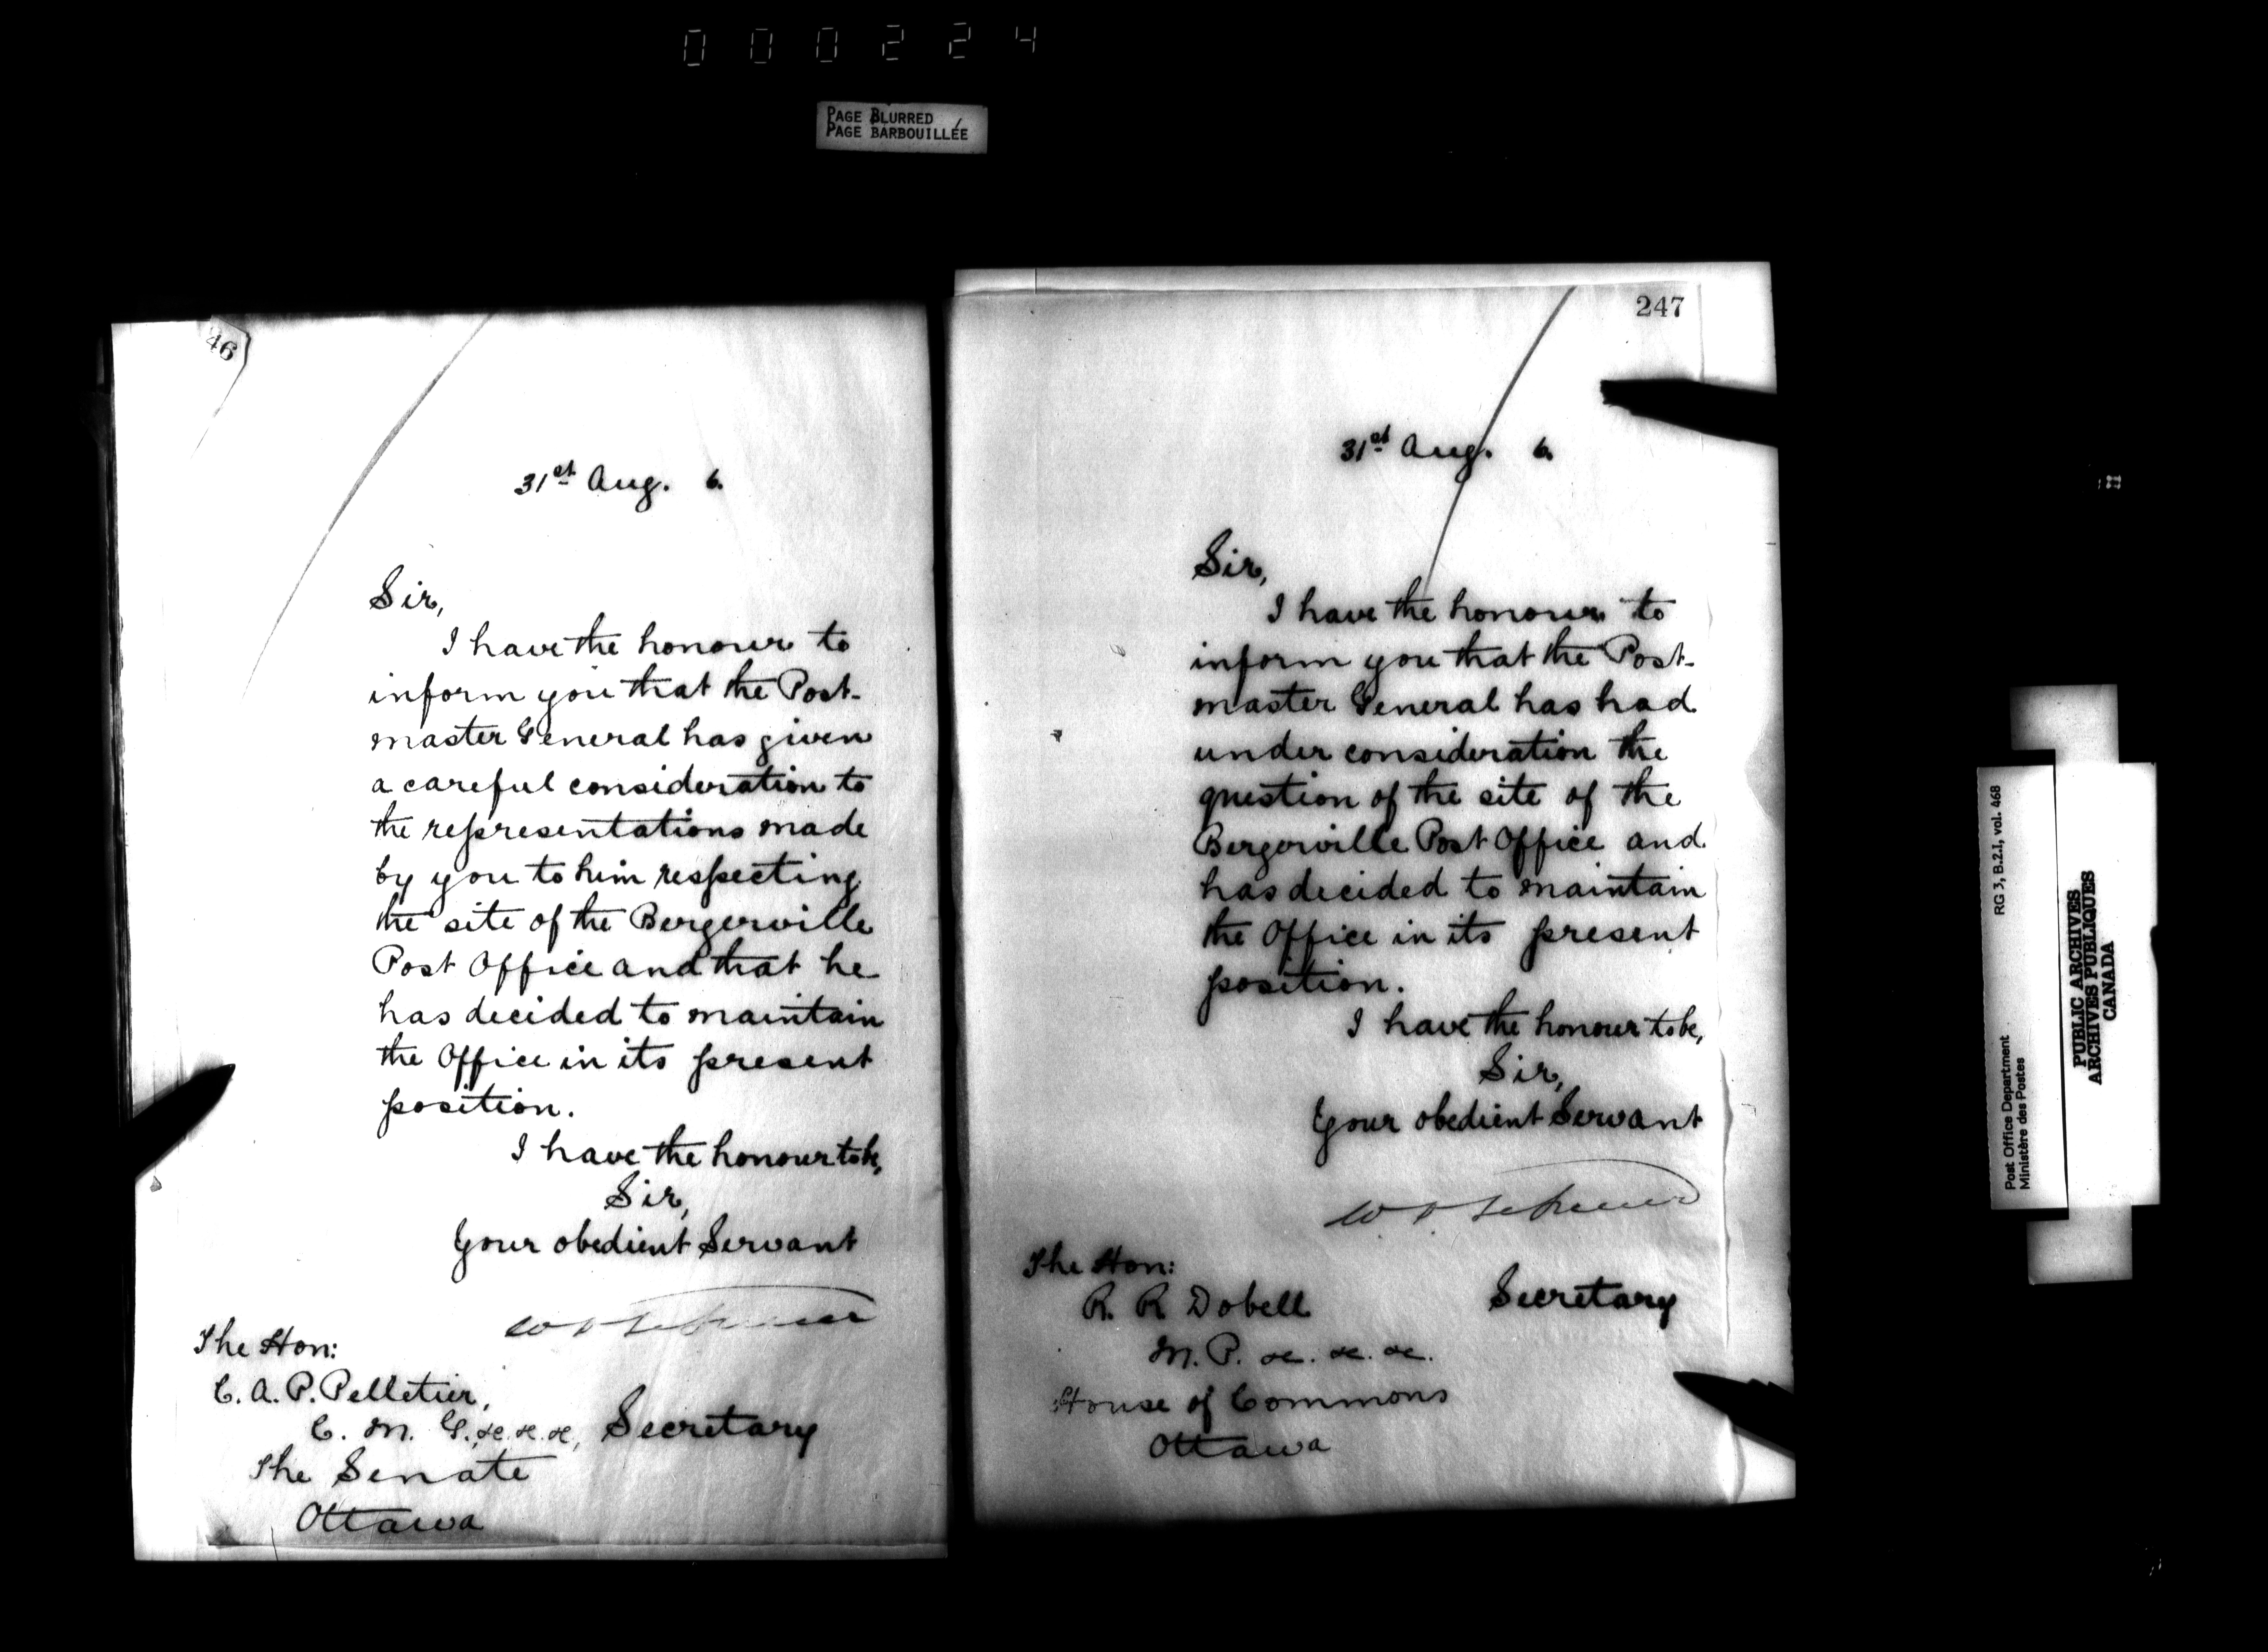 000224
PAGE BLURRED
PAGE BARBOUILLÉE
46
31st Aug. 6.
Sir,
I have the honour to
inform you that the Post-
master General has given
a careful consideration to
the representations made
by you to him respecting
the site of the Bergerville
Post Office and that he
has decided to maintain
the Office in its present
position.
I have the honour to be,
Sir,
Your obedient Servant
The Hon:
C. A. P. Pelletier,
C. M. G. &c. &c. &c, Secretary
The Senate
Ottawa
247
31st Aug. 6.
Sir,
I have the honour to
inform you that the Post-
master General has had
under consideration the
question of the site of the
Bergerville Post Office and
has decided to maintain
the Office in its present
position.
I have the honour to be,
Sir,
Your obedient Servant
The Hon:
R. R. Dobell Secretary
M. P. &c. &c. &c.
House of Commons
Ottawa
Post Office Department RG 3, B.2.I, vol. 468
Ministère des Postes
PUBLIC ARCHIVES
ARCHIVES PUBLIQUES
CANADA